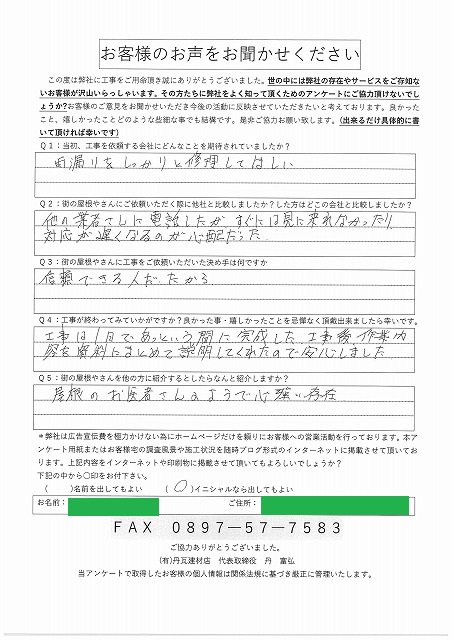 お客様のお声をお聞かせください
この度は弊社に工事をご用命頂き誠にありがとうございました。世の中には弊社の存在やサービスをご存知な
いお客様が沢山いらっしゃいます。その方たちに弊社をよく知って頂くためのアンケートにご協力頂けないでし
ょうか?お客様のご意見をお聞かせいただき今後の活動に反映させていただきたいと考えております。良かった
こと、嬉しかったことどのような些細な事でも結構です。是非ご協力お願い致します。(出来るだけ具体的に書
いて頂ければ幸いです)
Q1:当初、工事を依頼する会社にどんなことを期待されていましたか?
雨漏りをしっかりと修理してほしい
Q2:街の屋根やさんにご依頼いただく際に他社と比較しましたか?した方はどこの会社と比較しましたか?
他の業者さんに電話したが、すぐには見に来れなかったり
対応が遅くなるのが心配だった
Q3:街の屋根やさんに工事をご依頼いただいた決め手は何ですか
信頼できる人だったから
Q4:工事が終わってみていかがですか?良かった事・嬉しかったことを忌憚なく頂戴出来ましたら幸いです。
工事は1日であっという間に完成した、工事後、作業内
容を資料にまとめて説明してくれたので安心しました
Q5:街の屋根やさんを他の方に紹介するとしたらなんと紹介しますか?
屋根のお医者さんのようで心強い存在
*弊社は広告宣伝費を極力かけない為にホームページだけを頼りにお客様への営業活動を行っております。本ア
ンケート用紙またはお客様宅の調査風景や施工状況を随時ブログ形式のインターネットに掲載させて頂いてお
ります。上記内容をインターネットや印刷物に掲載させて頂いてもよろしいでしょうか?
下記の中から○印をお付下さい。
( )名前を出してもよい (○)イニシャルなら出してもよい
お名前: ご住所:
FAX 0897-57-7583
ご協力ありがとうございました。
(有)丹瓦建材店 代表取締役 丹 富弘
当アンケートで取得したお客様の個人情報は関係法規に基づき厳正に管理いたします。